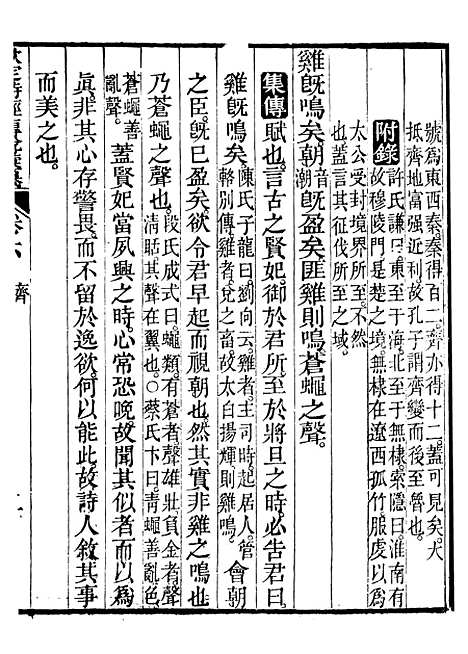 號爲東西秦。秦得百二。齊亦得十二。蓋可見矣。大
抵齊地富强近利。故孔子謂齊變而後至魯也。
附錄
許氏謙曰。東至于海。北至于無棣。索隱曰。淮南有
故穆陵門。是楚之境。無棣在遼西孤竹。服虔以爲
太公受封境界所至。不然
也。蓋言其征伐所至之域。
雞旣鳴矣。朝
音
潮
旣盈矣。匪雞則鳴。蒼蠅之聲。
集傳
賦也。言古之賢妃。御於君所。至於將旦之時。必吿君曰。
雞旣鳴矣。
陳氏子龍曰。劉向云。雞者。主司時起居人。管
輅別傳。雞者。兌之畜。故太白揚輝則雞鳴。
會朝
之臣。旣已盈矣。欲令君早起而視朝也。然其實非雞之鳴也。
乃蒼蠅之聲也。
段氏成式曰。蠅類。有蒼者聲雄壯。負金者聲
淸聒。其聲在翼也。○蔡氏卞曰。靑蠅善亂色。
蒼蠅善
亂聲。
蓋賢妃當夙興之時。心常恐晚。故聞其似者而以爲
眞。非其心存警畏。而不留於逸欲。何以能此。故詩人敘其事
而美之也。
卷六
齊